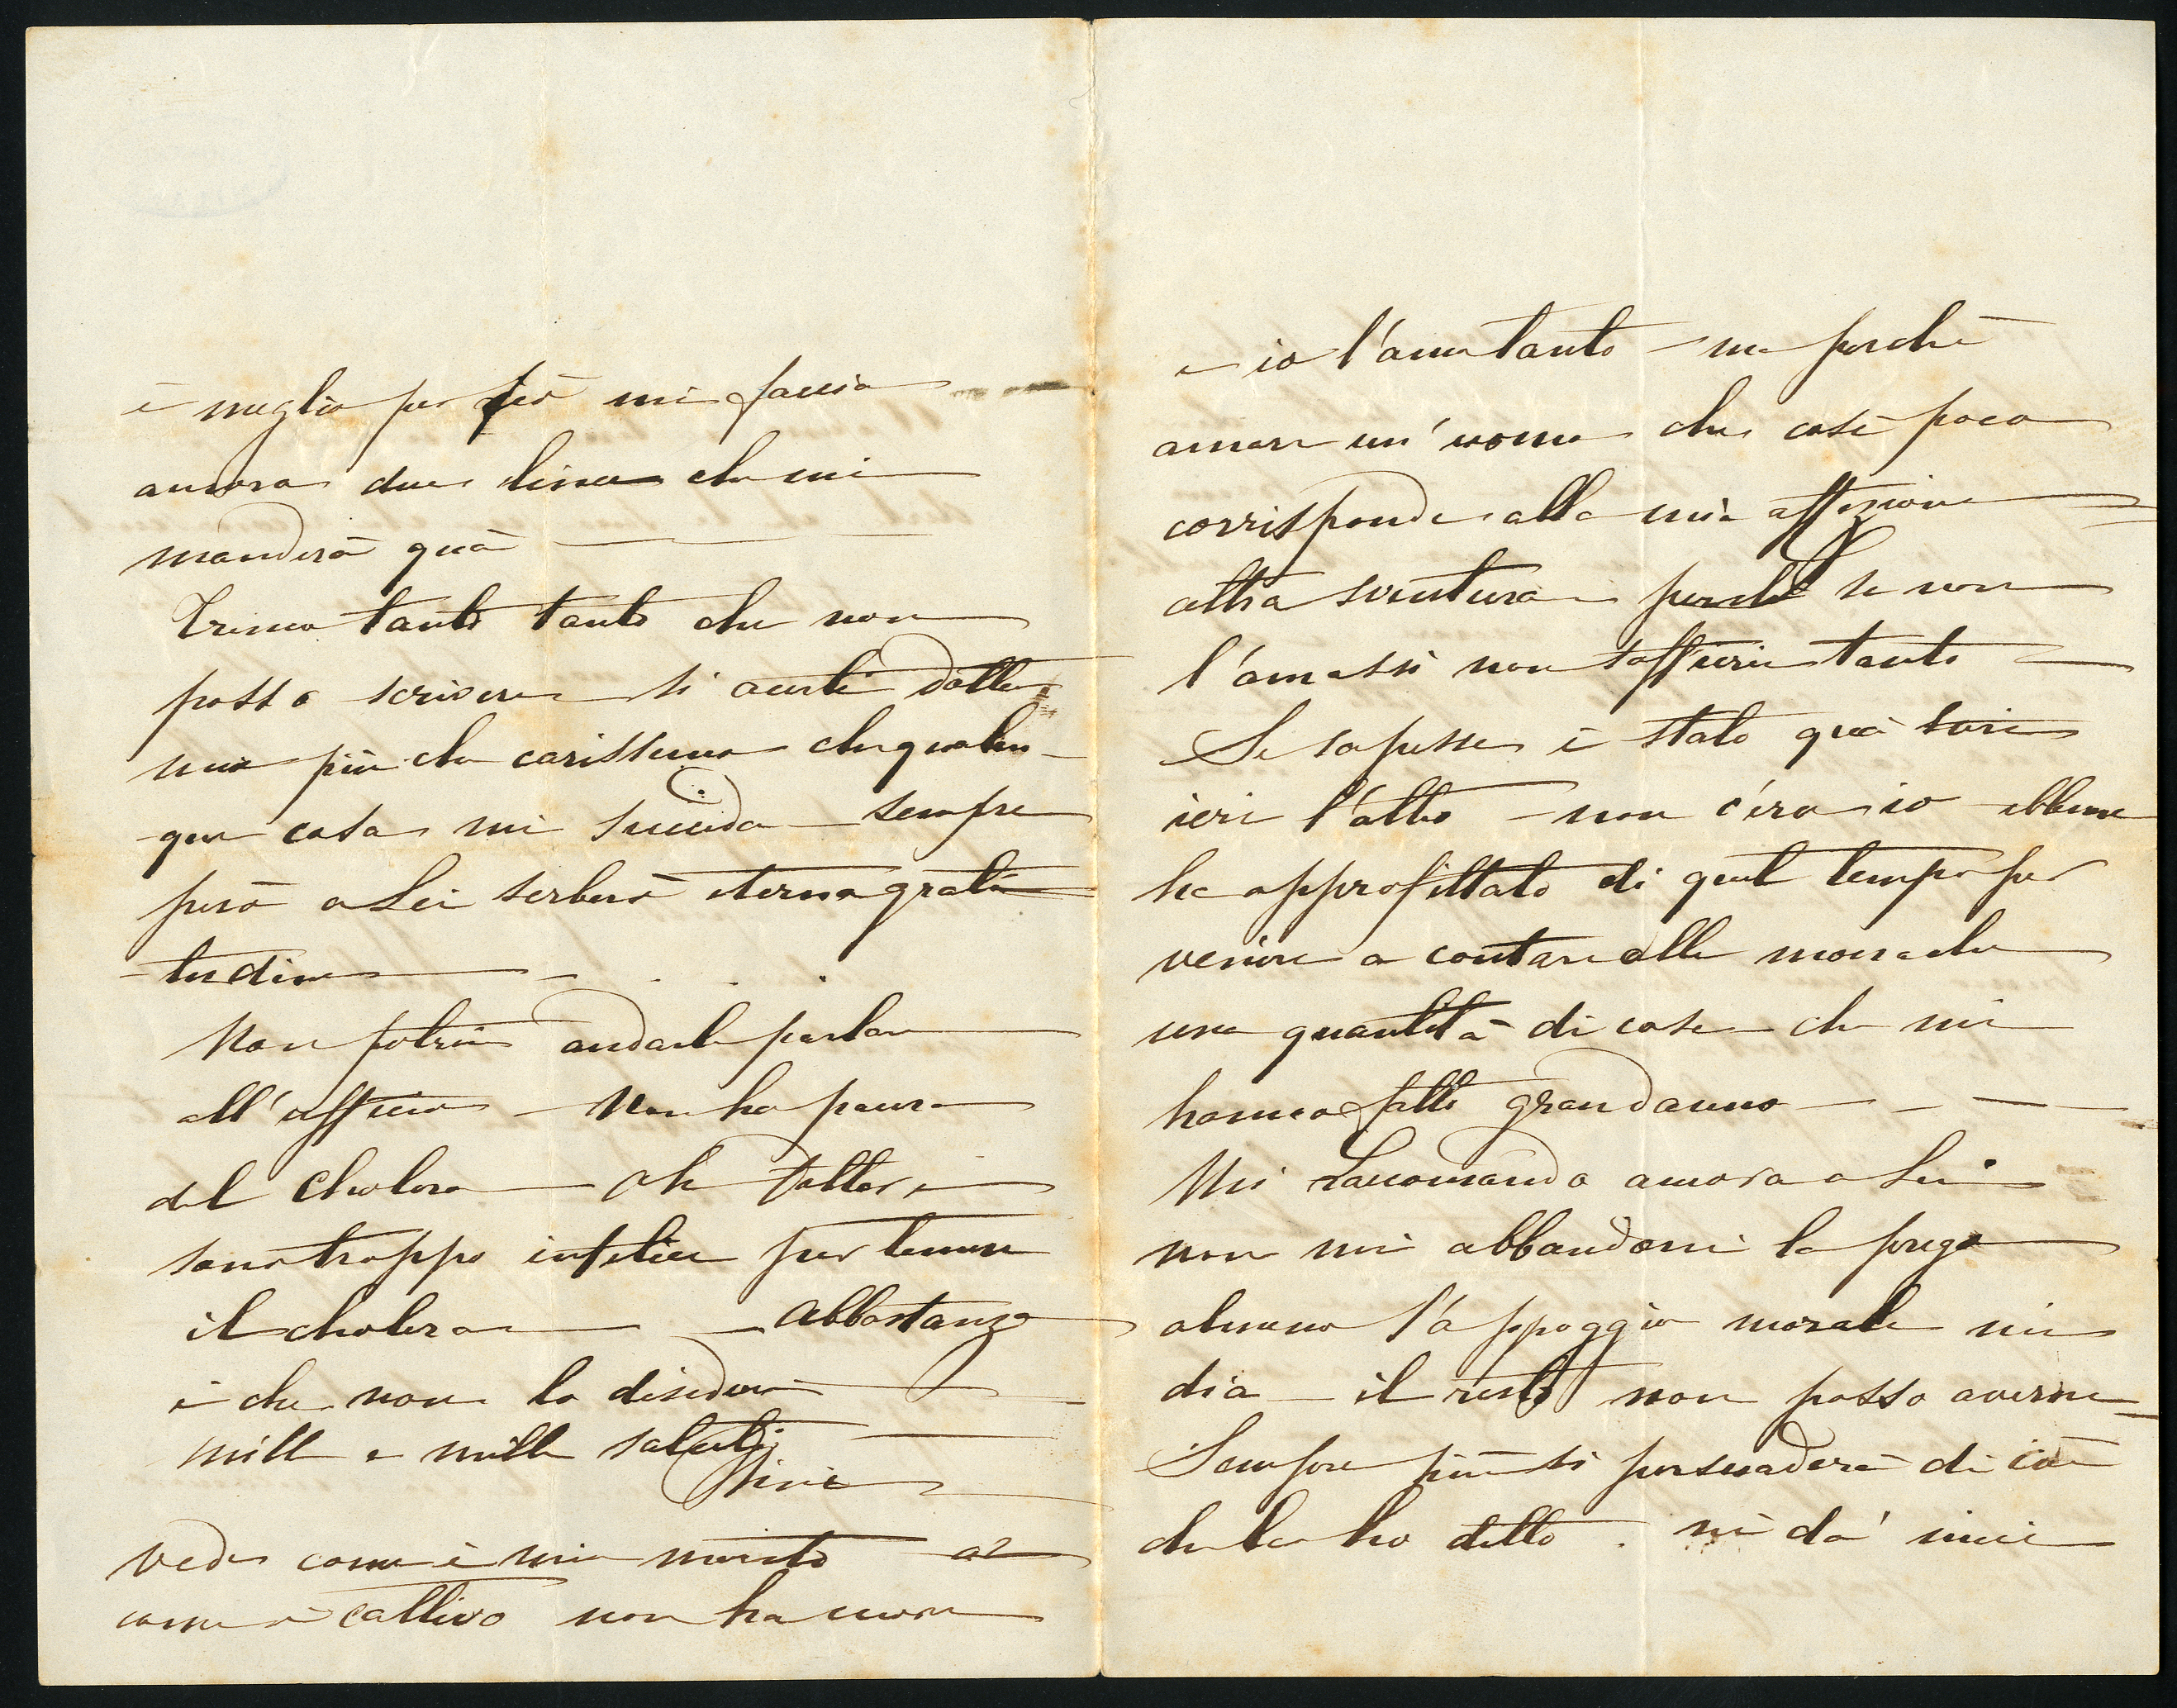 è meglio per ciò mi faccia
ancora due linee che mi
manderà quà
Tremo tanto tanto che non
posso scrivere si accerti dottor
mio più che carissimo che qualun-
que cosa mi succeda sempre
però a Lei serberò eterna grati-
tudine
Non potrei andarle parlare
all'ufficio - Non ha paura
del Cholera - Oh dottore
sono troppo infelice per temere
il cholera - Abbastanza
è che non lo desidero
mille e mille saluti
vede come è mio marito e
come è cattivo non ha cuore
e io l'amo tanto - ma perchè
amare un'uomo che così poco
corrisponde alla mia affezione
altra sventura perchè se non
l'amassi non soffrirei tanto
Se sapesse è stato quà
ieri l'altro - non c'ero io ebbene
ha approfittato di quel tempo per
venire a contare alle monache
una quantità di cose che mi
hanno fatto gran danno
Mi raccomando ancora a Lei
non mi abbandoni la prego
almeno l'appoggio morale mi
dia - il resto non posso averne
Sempre più si persuaderà di ciò
che le ho detto. mi dà